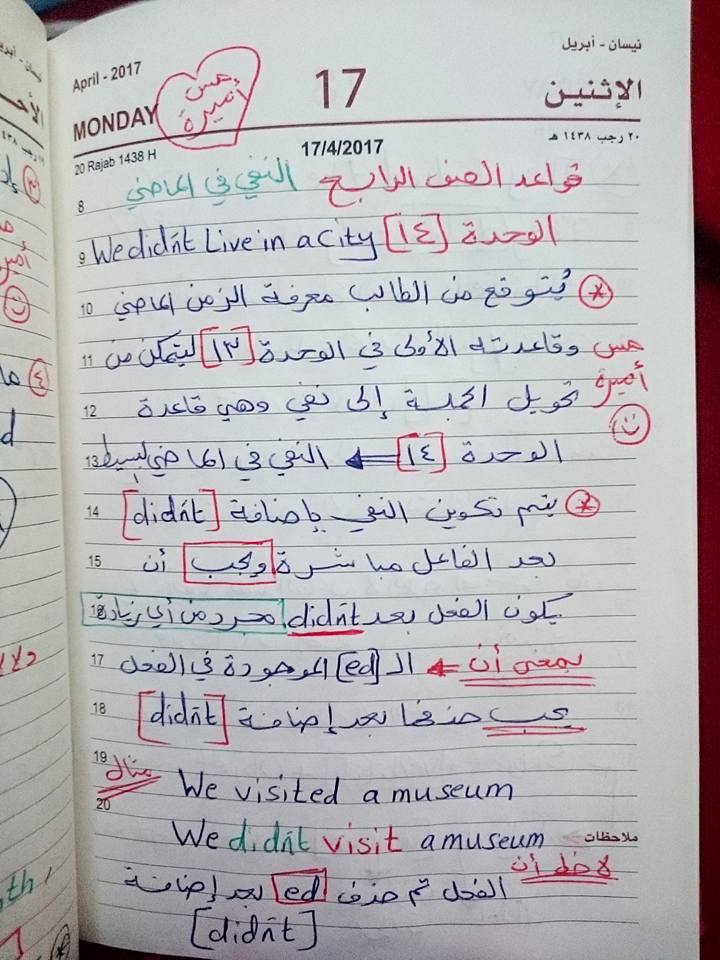 نيسان - أبريل
April - 2017
الإثنين
17
MONDAY
مس
أميرة
٢٠ رجب ١٤٣٨ هـ
17/4/2017
20 Rajab 1438 H
8 قواعد الصف الرابع النفي في الماضي
9 الوحدة [١٤] We didn't Live in a City
10 * يُتوقع من الطالب معرفة الزمن الماضي
11 وقاعدته الأولى في الوحدة [١٣] ليتمكن من
مس
أميرة
12 تحويل الجملة إلى نفي وهي قاعدة
13 الوحدة [١٤] ← النفي في الماضي لبسيط
14 * يتم تكوين النفي بإضافة [didn't]
15 بعد الفاعل مباشرة ويجب أن
16 يكون الفعل بعد didn't مجرد من أي زيادة
17 بمعنى أن ← الـ [ed] الموجودة في الفعل
18 يجب حذفها بعد إضافة [didn't]
19 مثال
We visited a museum
20
We didn't visit a museum
ملاحظات
لاحظ أن
الفعل تم حذف ed بعد إضافة
[didn't]